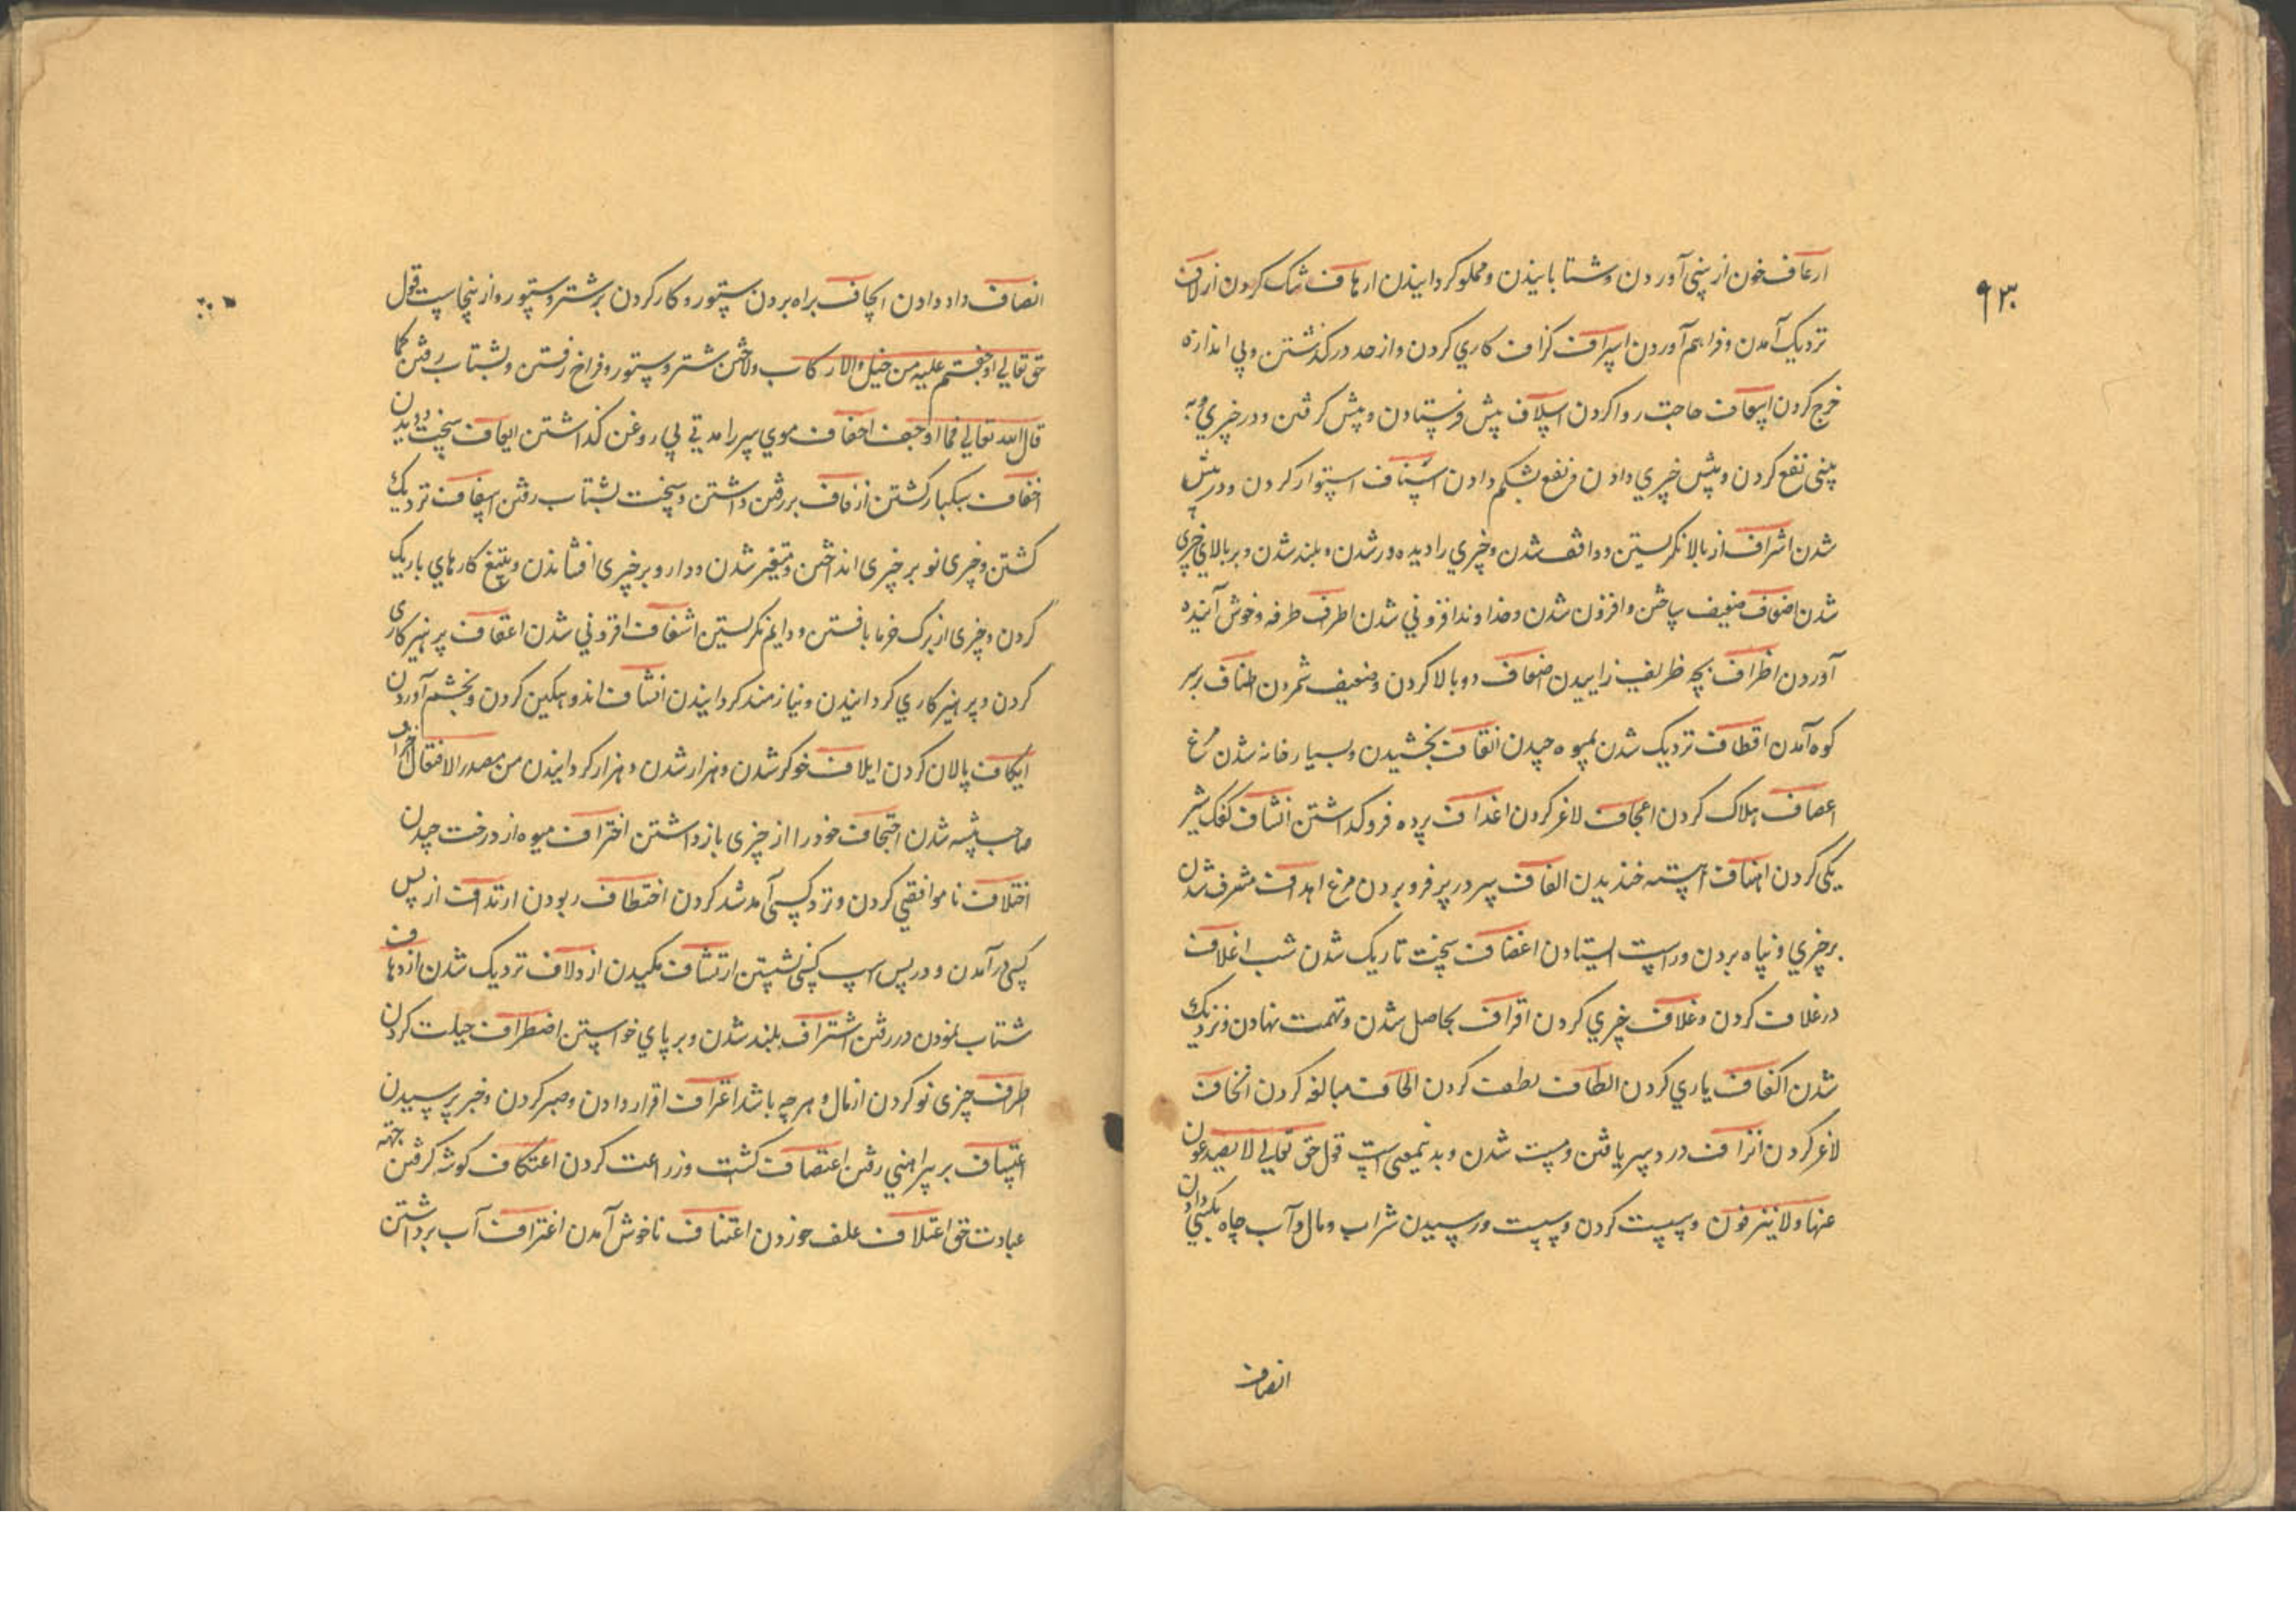 ۹۳
ارعاف خون از بینی آوردن و شتابانیدن و مملو کردانیدن ارهاف تنک کردن ازلاف
نزدیک آمدن و فراهم آوردن اسراف کزاف کاری کردن و از حد در کذشتن و بی اندازه
خرج کردن اسعاف حاجت روا کردن اسلاف پیش فرستادن و پیش کرفتن و در چیزی
نفع کردن و پیش چیزی دادن و نفع بشکم دادن استناف استوار کردن و در پیش
شدن اشراف از بالا نکریستن و واقف شدن و چیزی را دیده ور شدن و بلند شدن و بر بالای چیزی
شدن اضعاف ضعیف ساختن و افزون شدن و خداوند افزونی شدن اطراف طرفه و خوش آینده
آوردن اظراف بچه ظریف زاییدن اضعاف دوبالا کردن و ضعیف شمردن اطناف بر سر
کوه آمدن اقطاف نزدیک شدن بمیوه چیدن اتقاف بخشیدن و بسیار خانه شدن مرغ
اعصاف هلاک کردن اعجاف لاغر کردن اغداف پرده فرو کذاشتن انشاف کفک شیر
یکی کردن اهناف آهسته خندیدن الفاف سر در پر فرو بردن مرغ اهداف مشرف شدن
بر چیزی و پناه بردن و راست ایستادن اغضاف سخت تاریک شدن شب اغلاف
در غلاف کردن و غلاف چیزی کردن اقراف بحاصل شدن و تهمت نهادن و نزدیک
شدن اکناف یاری کردن الطاف لطف کردن الحاف مبالغه کردن انحاف
لاغر کردن انزاف درد سر یافتن و مست شدن و بدینمعنی است قول حق تعالی لا یصدعون
عنها و لا ینزفون و سست کردن و سست و رسیدن شراب و مال و آب چاه بکشیدن
انصاف
انصاف داد دادن ایجاف براه بردن ستور و کار کردن بر شتر و ستور و ازینجاست قول
حق تعالی اوجفتم علیه من خیل و لا رکاب و لاختن شتر و ستور و فراخ رفتن و بشتاب رفتن کما
قال الله تعالی فما اوجفت احفاف موی سر را مدتی بی روغن کذاشتن ایعاف سخت دویدن
اخفاف سبکبار کشتن ازفاف بر رفتن داشتن و سخت بشتاب رفتن اسفاف نزدیک
کشتن و چیزی نو بر چیزی انداختن و متغیر شدن و دارو بر چیزی افشاندن و تتبع کارهای باریک
کردن و چیزی از برک خرما بافتن و دایم نکریستن اشفاف افزونی شدن اعفاف پرهیزکاری
کردن و پرهیزکاری کردانیدن و نیازمند کردانیدن انشاف اندوهکین کردن و بخشم آوردن
ایکاف پالان کردن ایلاف خوکر شدن و هزار شدن و هزار کردانیدن من مصدر الافتعال احتراف
صاحب پیشه شدن احتجاف خود را از چیزی باز داشتن اختراف میوه از درخت چیدن
اختلاف ناموافقی کردن و نزد کسی آمد شد کردن اختطاف ربودن ارتداف از پس
کسی در آمدن و در پس اسپ کسی نشستن ارتشاف مکیدن ازدلاف نزدیک شدن ازدهاف
شتاب نمودن در رفتن اشتراف بلند شدن و بر پای خواستن اضطراف حیلت کردن
اطراف چیزی نو کردن از مال و هر چه باشد اعتراف اقرار دادن و صبر کردن و خبر پرسیدن
اعتساف بر بیراهنی رفتن اعتصاف کشت و زراعت کردن اعتکاف کوشه کرفتن جهة
عبادت حق اعتلاف علف خوردن اعتناف ناخوش آمدن اغتراف آب برداشتن